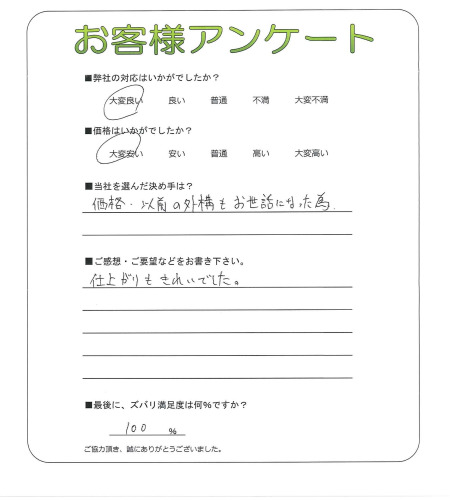 お客様アンケート
■弊社の対応はいかがでしたか？
大変良い 良い 普通 不満 大変不満
■価格はいかがでしたか？
大変安い 安い 普通 高い 大変高い
■当社を選んだ決め手は？
価格・以前の外構もお世話になった為
■ご感想・ご要望などをお書き下さい。
仕上がりもきれいでした。
■最後に、ズバリ満足度は何％ですか？
100 ％
ご協力頂き、誠にありがとうございました。